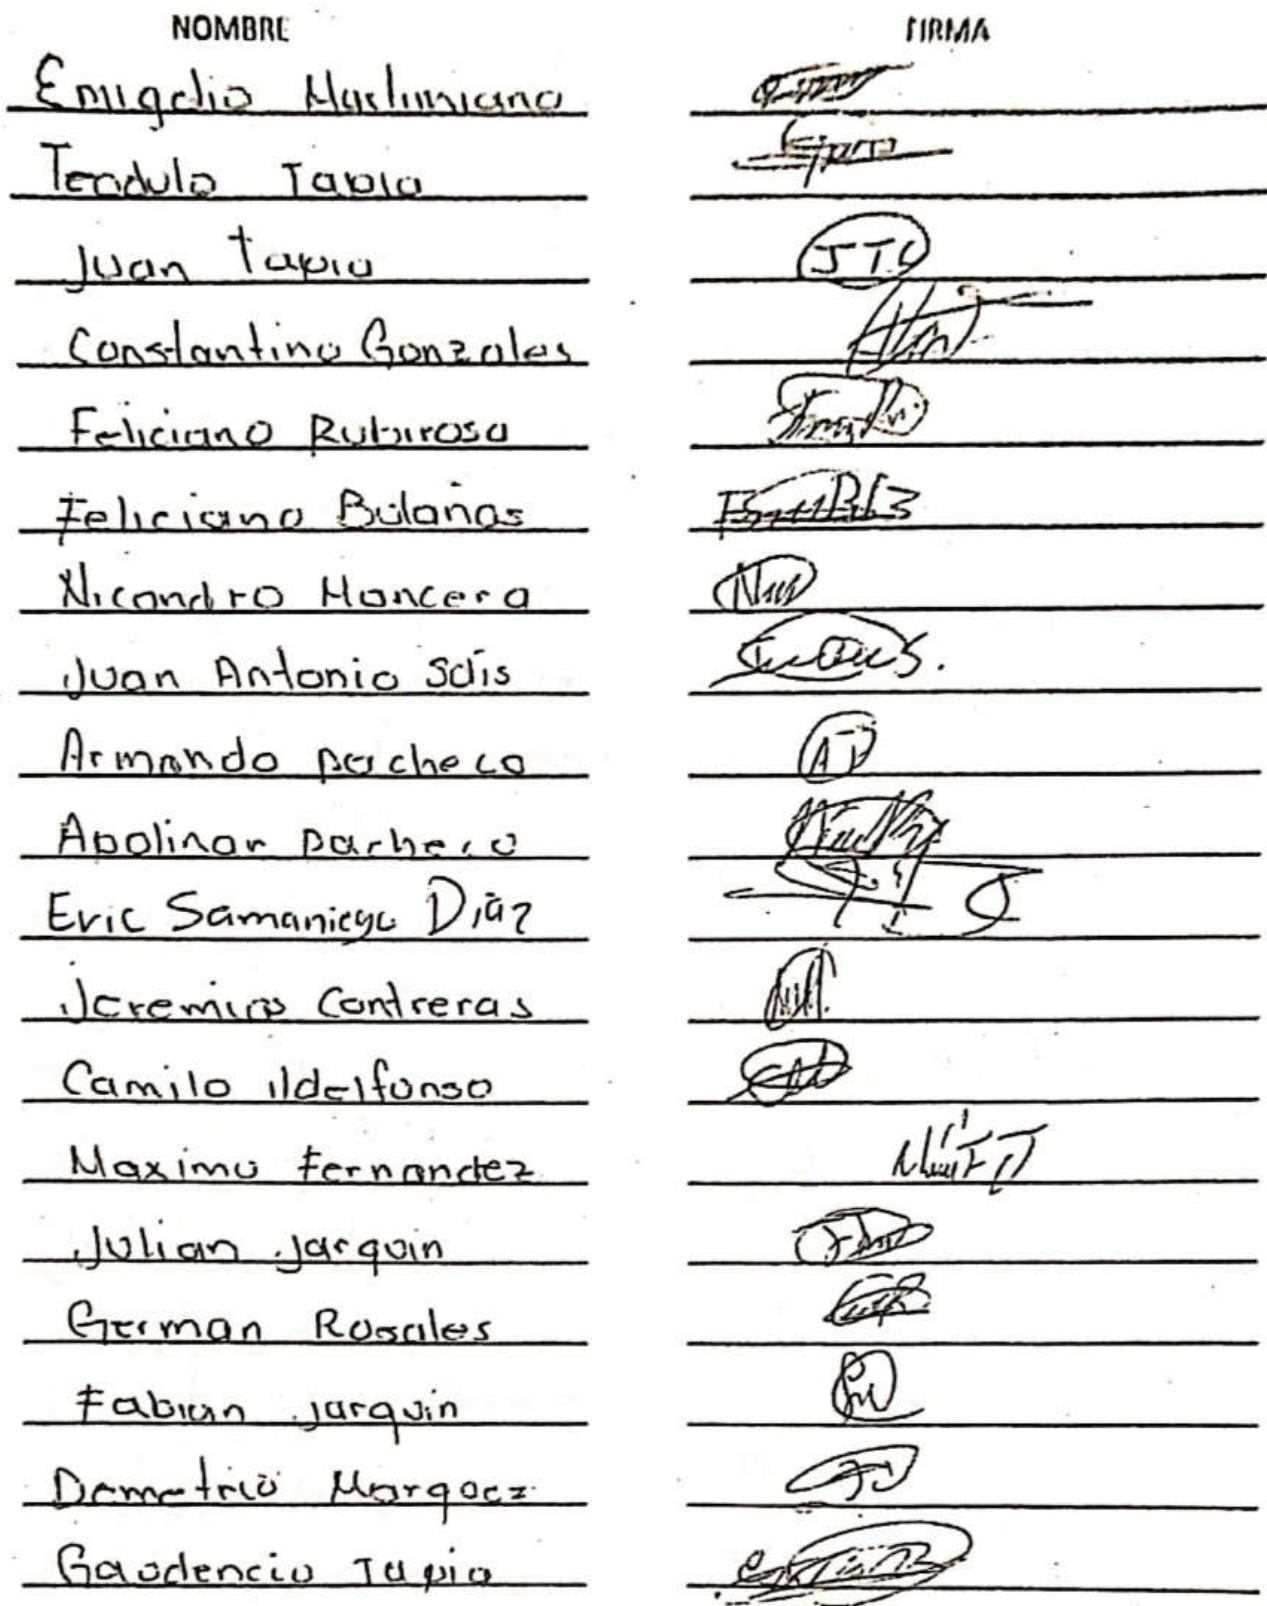 NOMBRE FIRMA
Emigdio Maximiano
Teodulo Tapia
Juan Tapia JTC
Constantino Gonzales
Feliciano Rubirosa
Feliciano Bolaños
Nicandro Mancera
Juan Antonio Solis
Armando pacheco AP
Apolinar pacheco
Eric Samaniego Diaz
Jeremias Contreras
Camilo ildelfonso
Maximo Fernandez
Julian jarquin
German Rosales
Fabian jarquin
Demetrio Marquez
Gaudencio Tapia